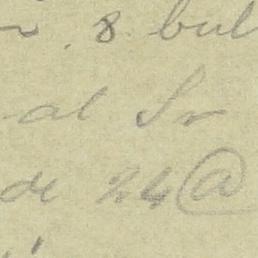 8 bul
al Sr
de 24 @